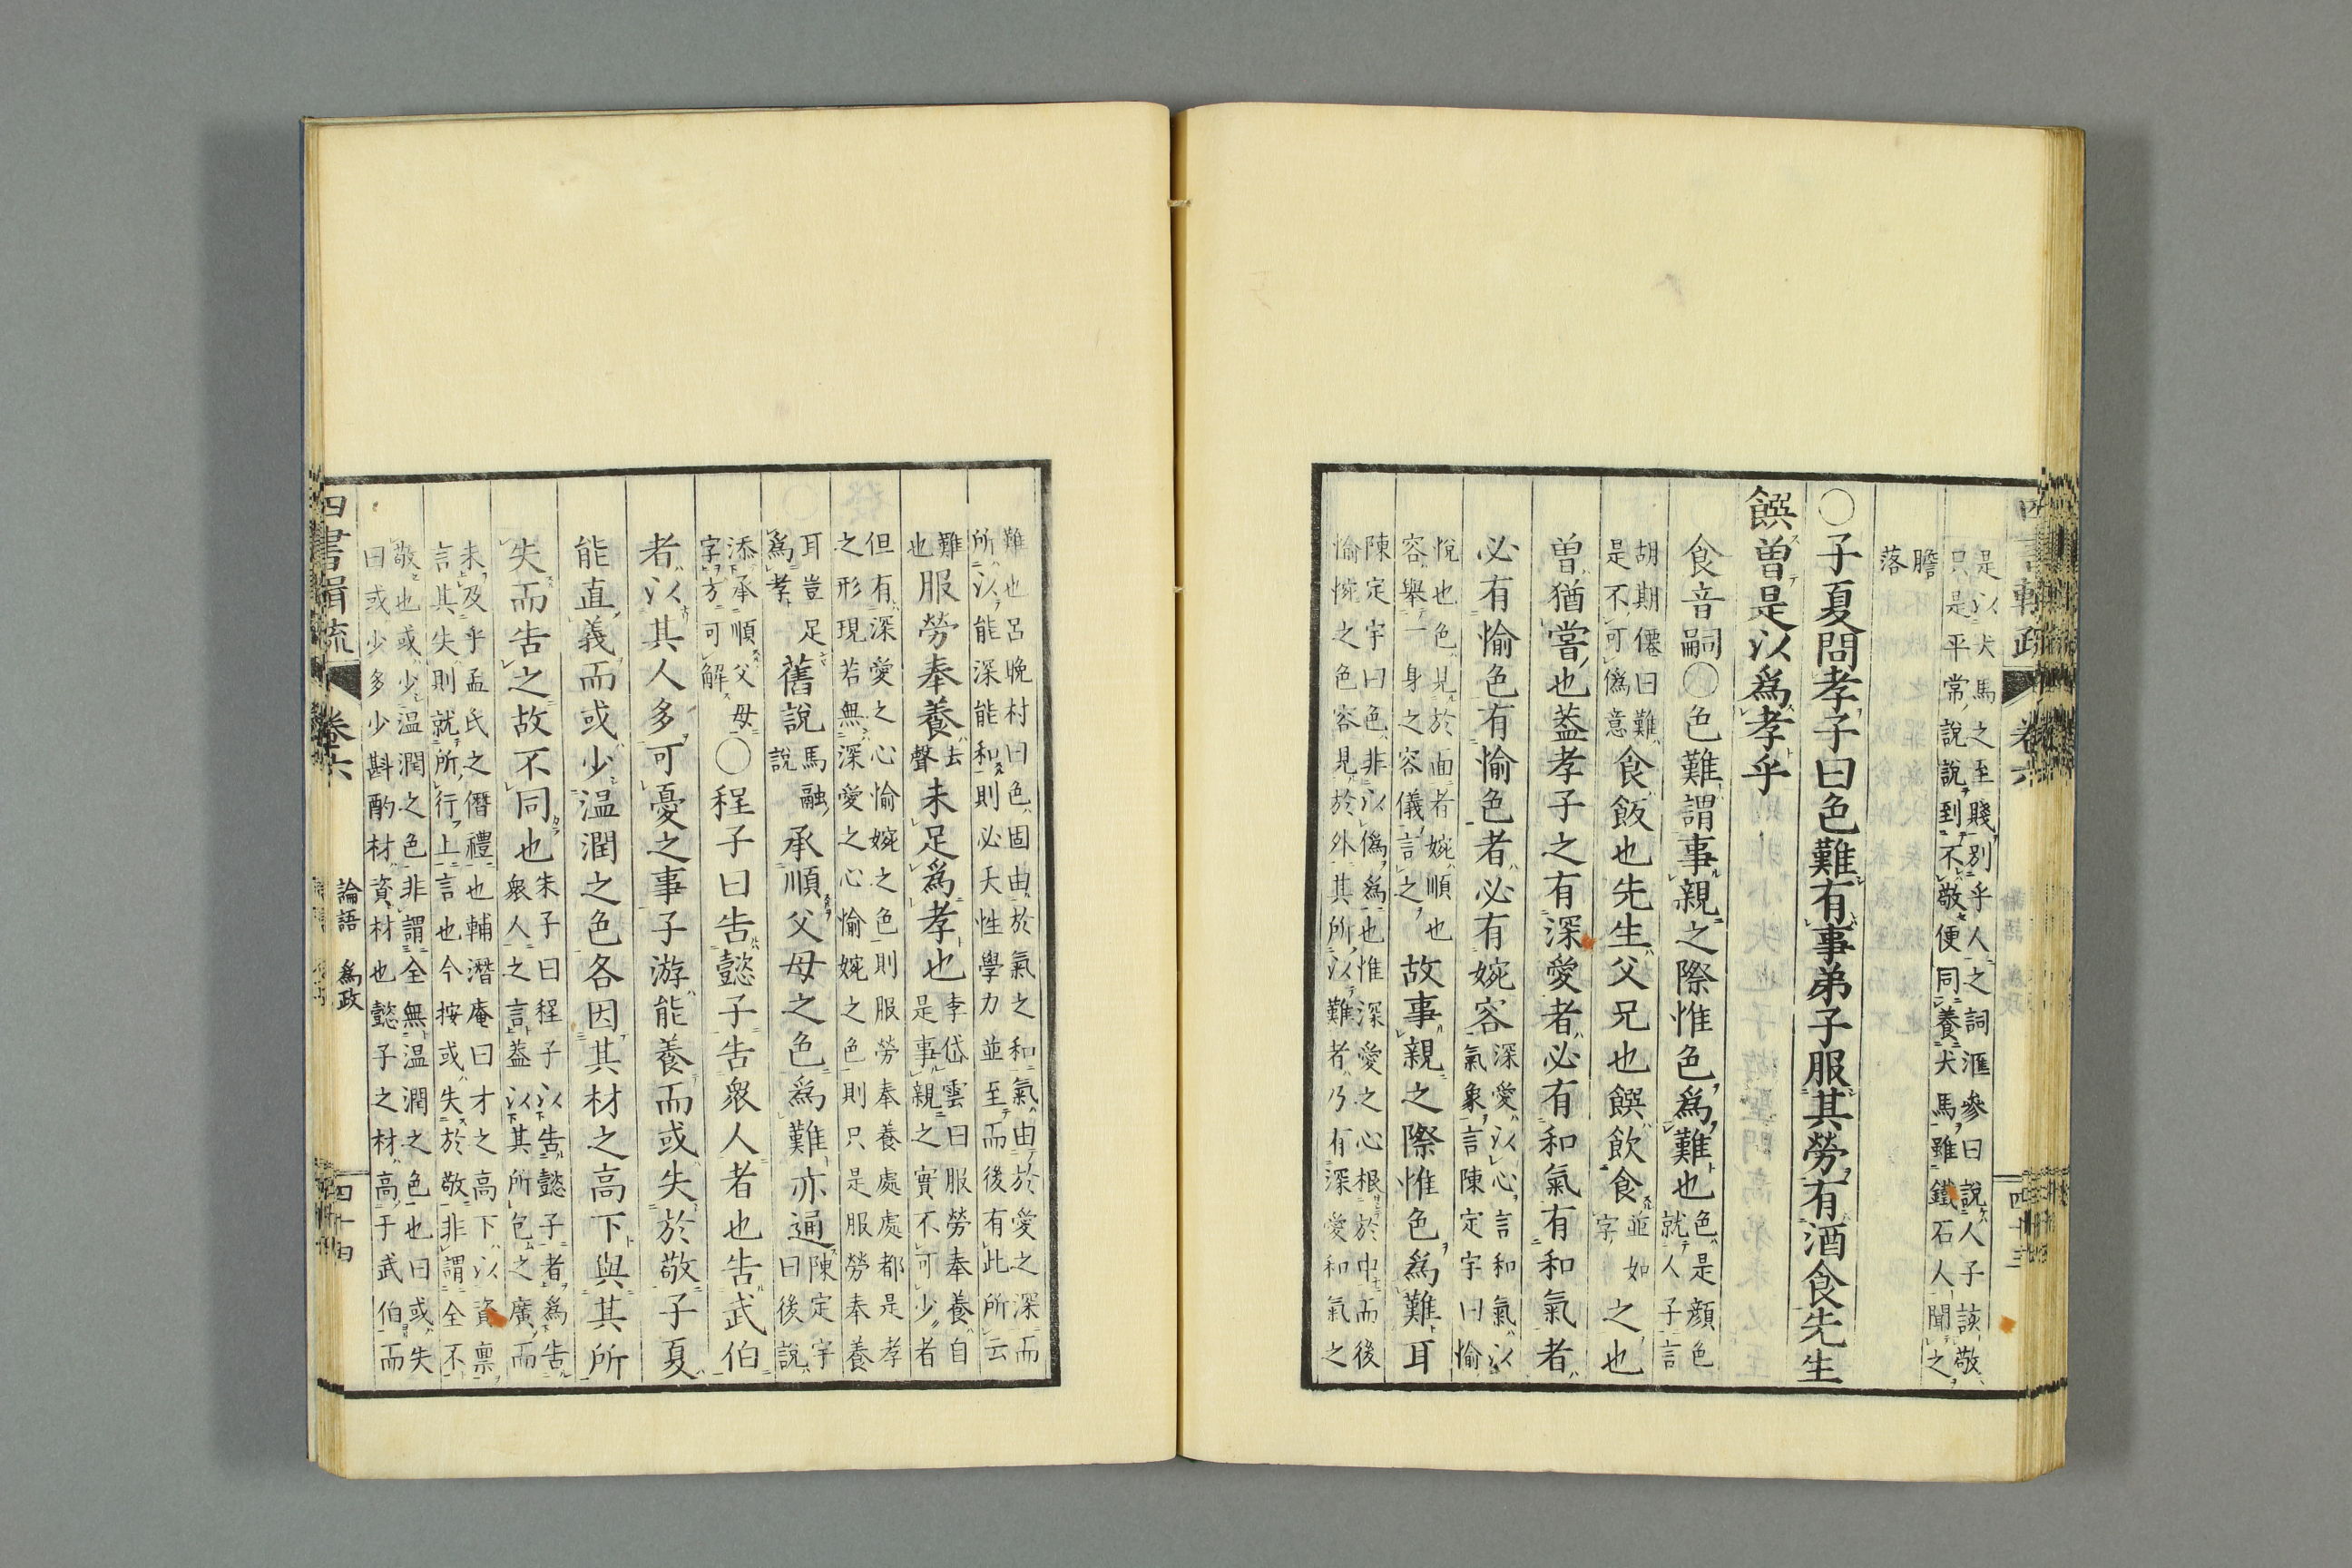 是以犬馬之至賤別乎人之詞滙參曰說人子談敬
只是平常說說到不敬便同養犬馬雖鐵石人聞之
膽
落
○子夏問孝子曰色難有事弟子服其勞有酒食先生
饌曾是以爲孝乎
食音嗣○色難謂事親之際惟色爲難也色是顏色
就人子言
胡期僊曰難
是不可僞意
食飯也先生父兄也饌飲食並如
字
之也
曾猶嘗也葢孝子之有深愛者必有和氣有和氣者
必有愉色有愉色者必有婉容深愛以心言和氣以
氣象言陳定宇曰愉
悅也色見於面者婉順也
容舉一身之容儀言之
故事親之際惟色爲難耳
陳定宇曰色非以僞爲也惟深愛之心根於中而後
愉惋之色容見於外其所以難者乃有深愛和氣之
難也呂晚村曰色固由於氣之和氣由於愛之深而
所以能深能和則必天性學力並至而後有此所云
難
也
服勞奉養去
聲
未足爲孝也李岱雲曰服勞奉養自
是事親之實不可少者
但有深愛之心愉婉之色則服勞奉養處處都是孝
之形現若無深愛之心愉婉之色則只是服勞奉養
耳豈足
爲孝
舊說馬融
說
承順父母之色爲難亦通陳定宇
曰後說
添承順父母
字方可解
○程子曰告懿子告衆人者也告武伯
者以其人多可憂之事子游能養而或失於敬子夏
能直義而或少温潤之色各因其材之高下與其所
失而告之故不同也朱子曰程子以告懿子者爲告
衆人之言葢以其所包之廣而
未及乎孟氏之僭禮也輔潛庵曰才之高下以資禀
言其失則就所行上言也今按或失於敬非謂全不
敬也或少温潤之色非謂全無温潤之色也曰或失
曰或少多少斟酌材資材也懿子之材高于武伯而
四書輯疏
卷六
論語 爲政